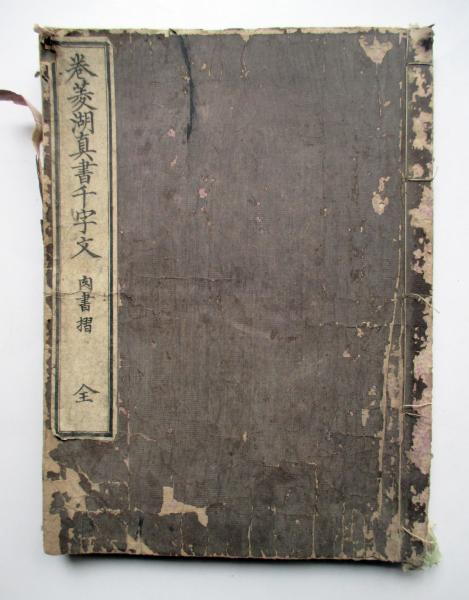 巻菱湖真書千字文 肉書摺 全